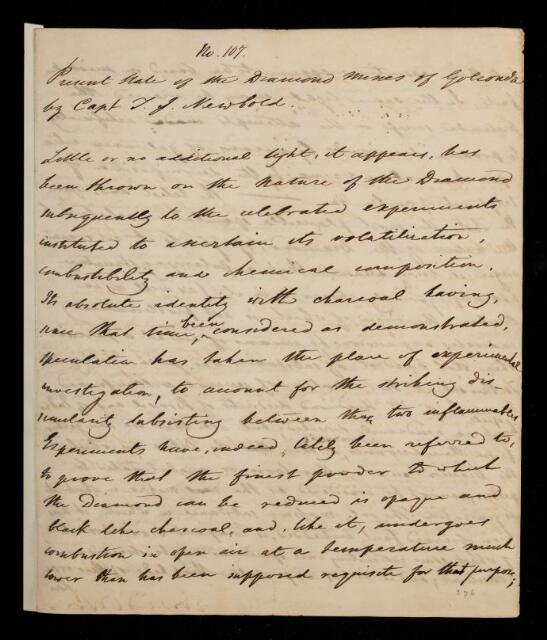 No. 107.
Present State of the Diamond Mines of Golconda
by Capt T. J. Newbold.
Little or no additional light, it appears, has
been thrown on the nature of the Diamond
subsequently to the celebrated experiments
instituted to ascertain its volatilization,
combustibility and chemical composition.
Its absolute identity with charcoal having,
since that time been considered as demonstrated,
speculation has taken the place of experimental
investigation, to account for the striking dis-
similarity subsisting between these two inflammables
Experiments have, indeed, lately been referred to,
to prove that the finest powder to which
the Diamond can be reduced is opaque and
black like charcoal, and, like it, undergoes
combustion in open air at a temperature much
lower than has been supposed requisite for that purpose;
276